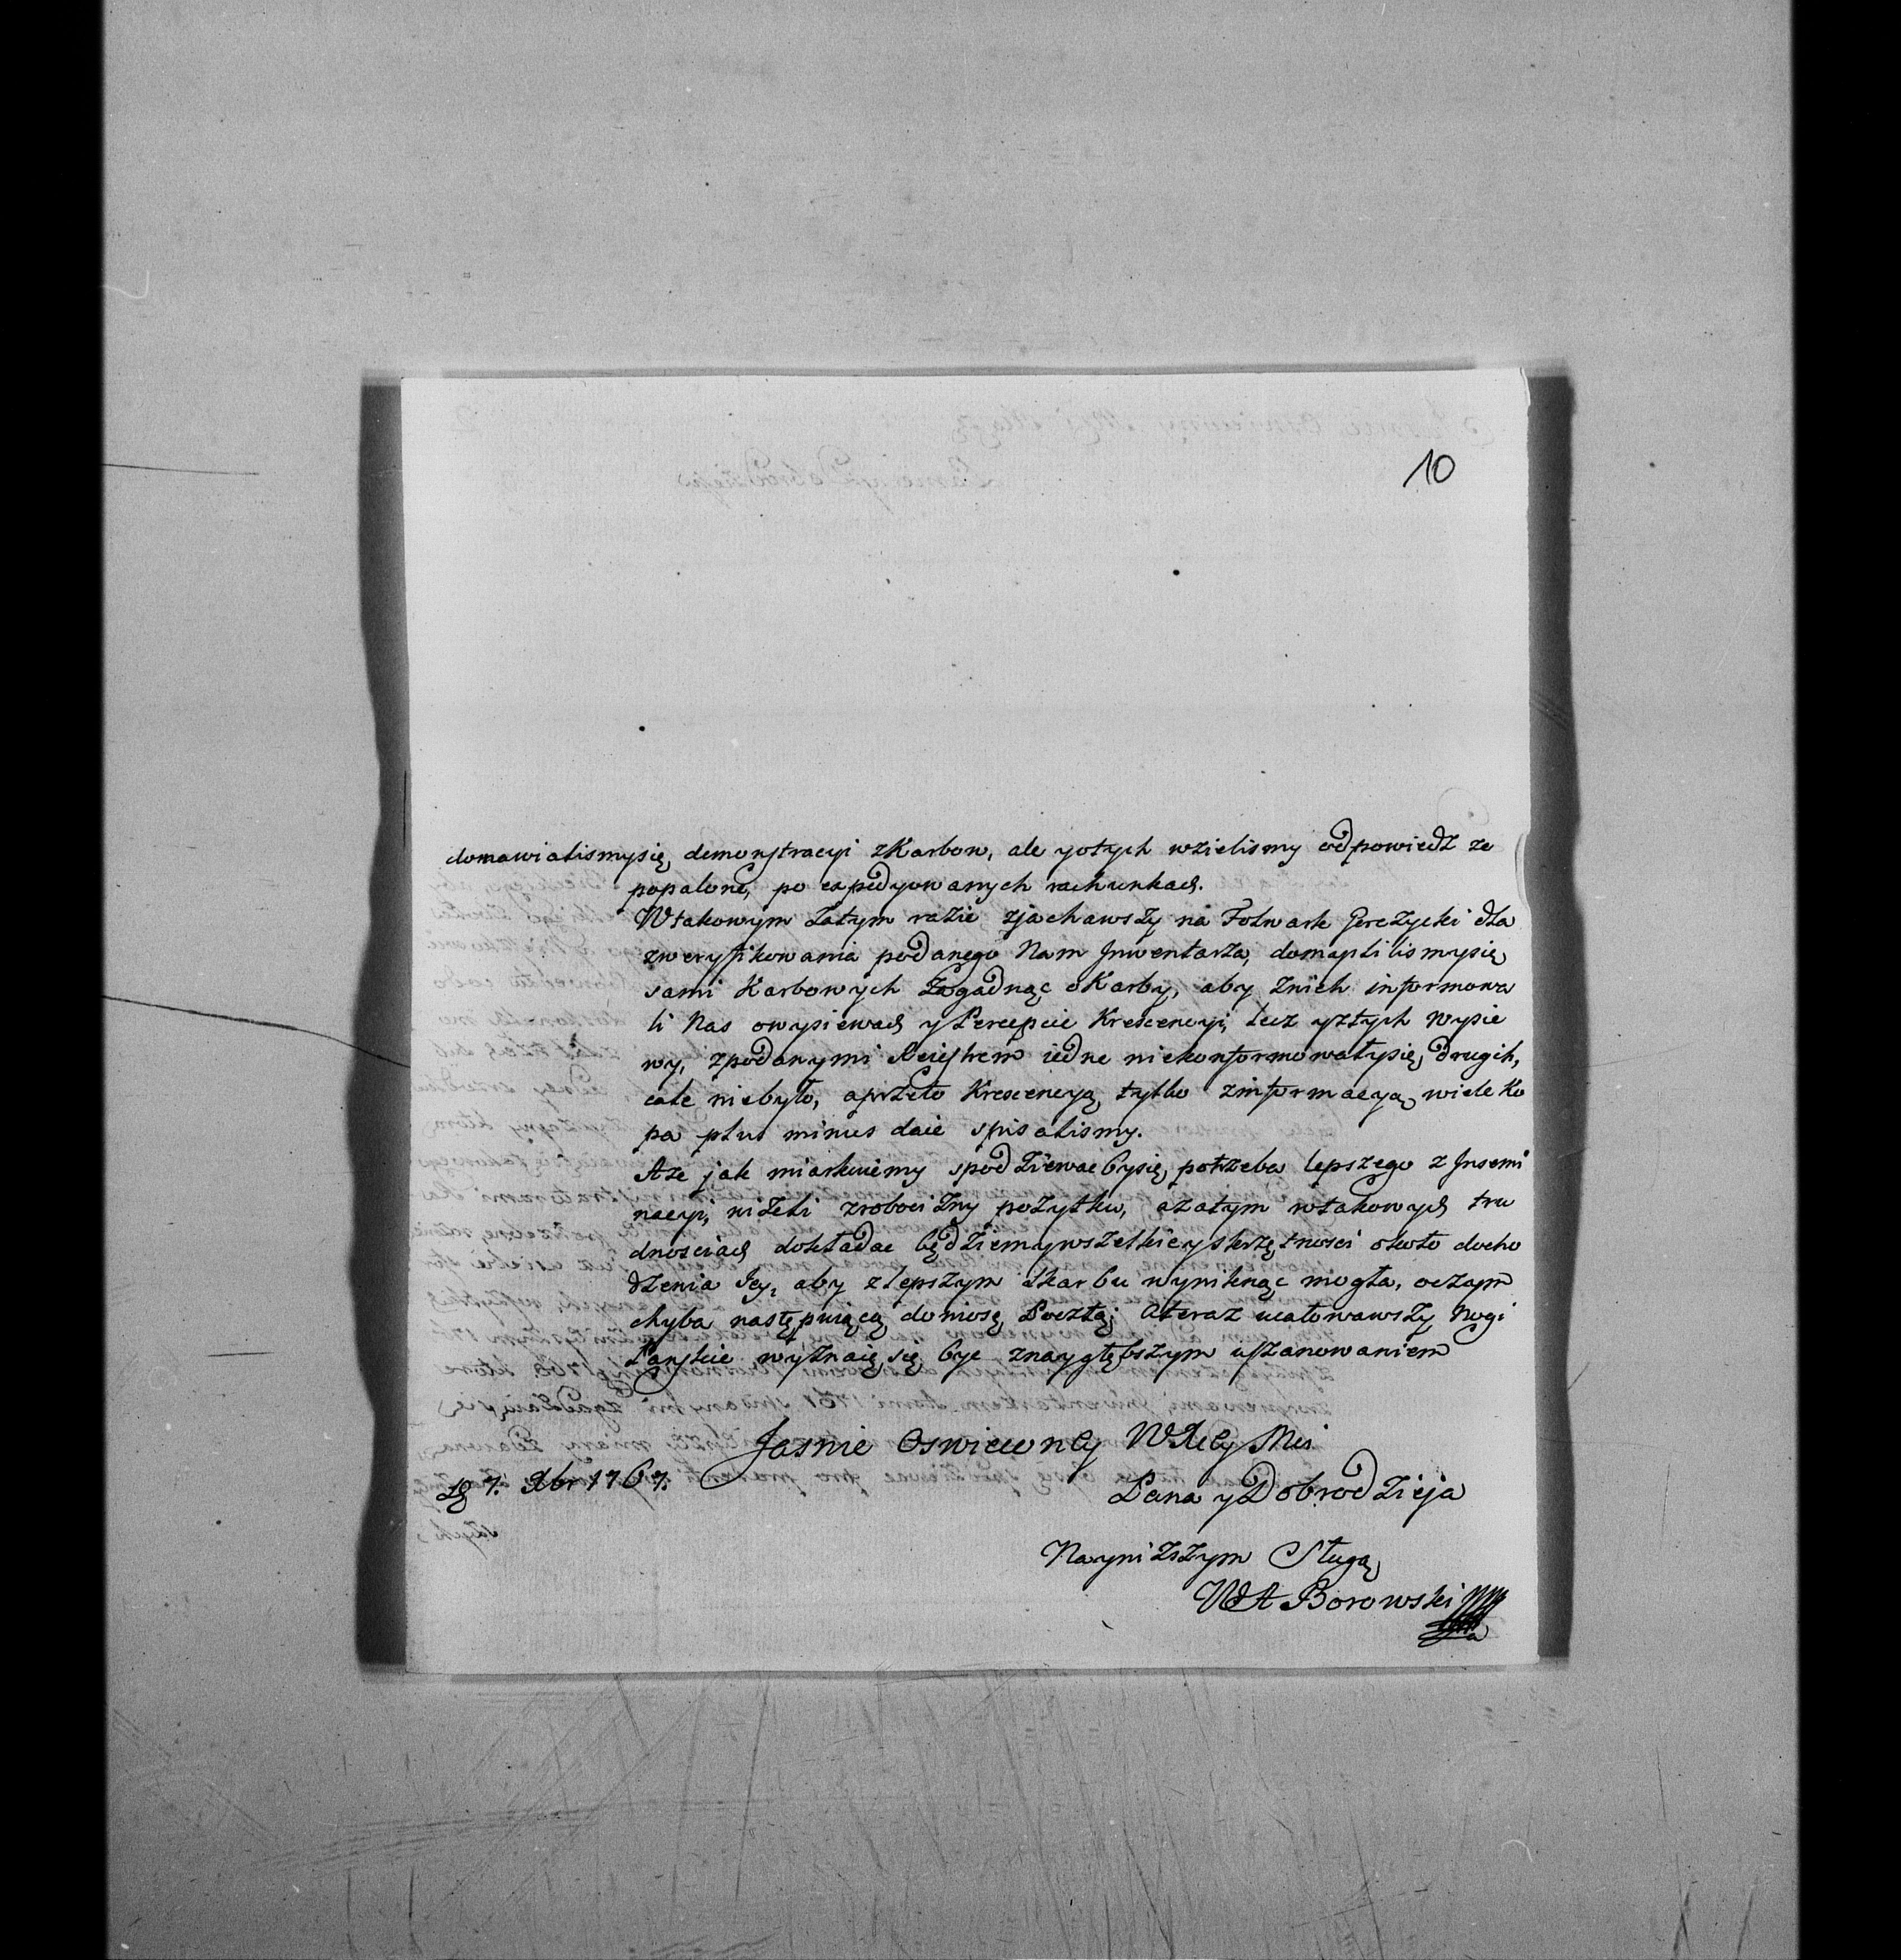 10
domawialismysię, demonstracyi zKarbow, ale yotych wzielismy odpowiedź ze
popalone, po expedyowanych rachunkach.
Wtakowym Zatym razie zjachawszy na Folwark Gerczycki dla
zweryfikowania podanego Nam Jnwentarza, domaślilismysię
sami Karbowych Zagadnąc oKarby, aby Znich informowa
li Nas owysiewach yPercepcie Krescencyi, lecz yztych Wysie
wy, zpodanymi Reiestrem iedne niekonformowałysię, drugich,
cale niebyło, aprzeto Krescencyą, tylko zinformacyą, wiele Ko
pa plus minus daie spisalismy.
Aże jak miarkuiemy spodZiewac bysię, potrzeba lepszego z Jnsemi
nacyi, niZeli zrobocizny poZytku, azatym wtakowych tru
dnosciach dokładac będZiemywszelkiey skrzętnosci około docho
dzenia Jey, aby zlepszym Skarbu wyniknąc mogła, oczym
chyba następuiącą doniosę Pocztą; Ateraz ucałowawszy Nogi
Panskie wyznaię się byc znaygłębszym uszanowaniem
Jasnie Oswiecone&#8203;y WXcey Mci
D 7. Xbr 1767.
Pana yDobrodZieja
NayniZszym Sługą,
WA Borowski